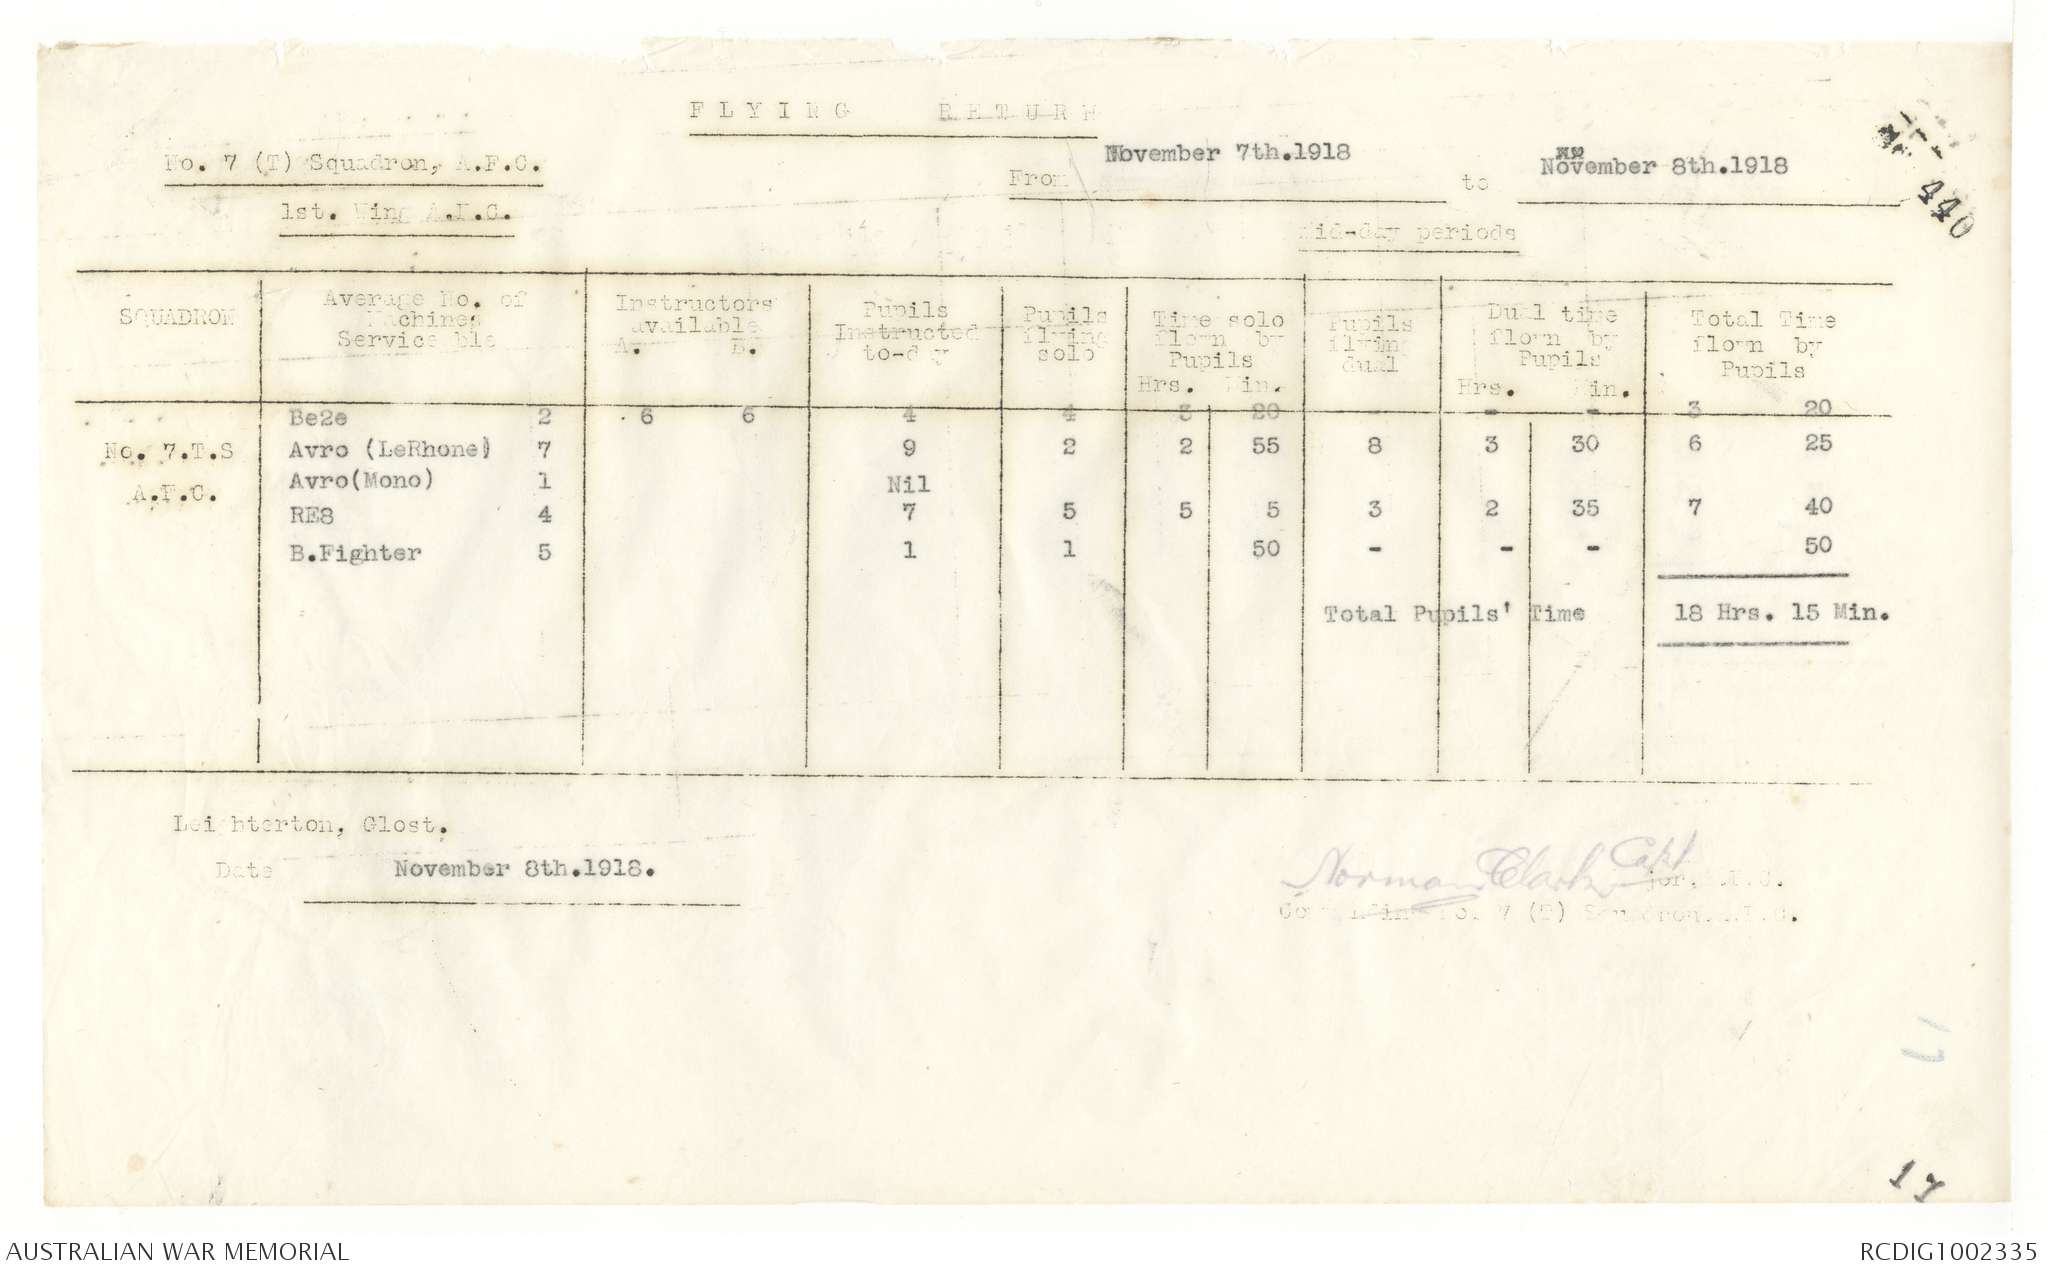 FLYING RETURN
No. 7 (T) Squadron, A.F.C.
1st. Wing A.F.C.
From November 7th.1918 to November 8th.1918
440
Mid-day periods
SQUADRON Average No. of Machines Serviceable Instructors available A. B. Pupils Instructed to-day Pupils flying solo Time solo flown by Pupils Hrs. Min. Pupils flying dual Dual time flown by Pupils Hrs. Min. Total Time flown by Pupils
Be2e 2 6 6 4 4 3 20 - - - 3 20
No. 7.T.S Avro (LeRhone) 7 9 2 2 55 8 3 30 6 25
A.F.C. Avro(Mono) 1 Nil
RE8 4 7 5 5 5 3 2 35 7 40
B.Fighter 5 1 1 50 - - - 50
Total Pupils' Time 18 Hrs. 15 Min.
Leighterton, Glost.
Date November 8th.1918.
Norman Clark Capt
Commanding No. 7 (T) Squadron.A.F.C.
17
17
AUSTRALIAN WAR MEMORIAL
RCDIG1002335